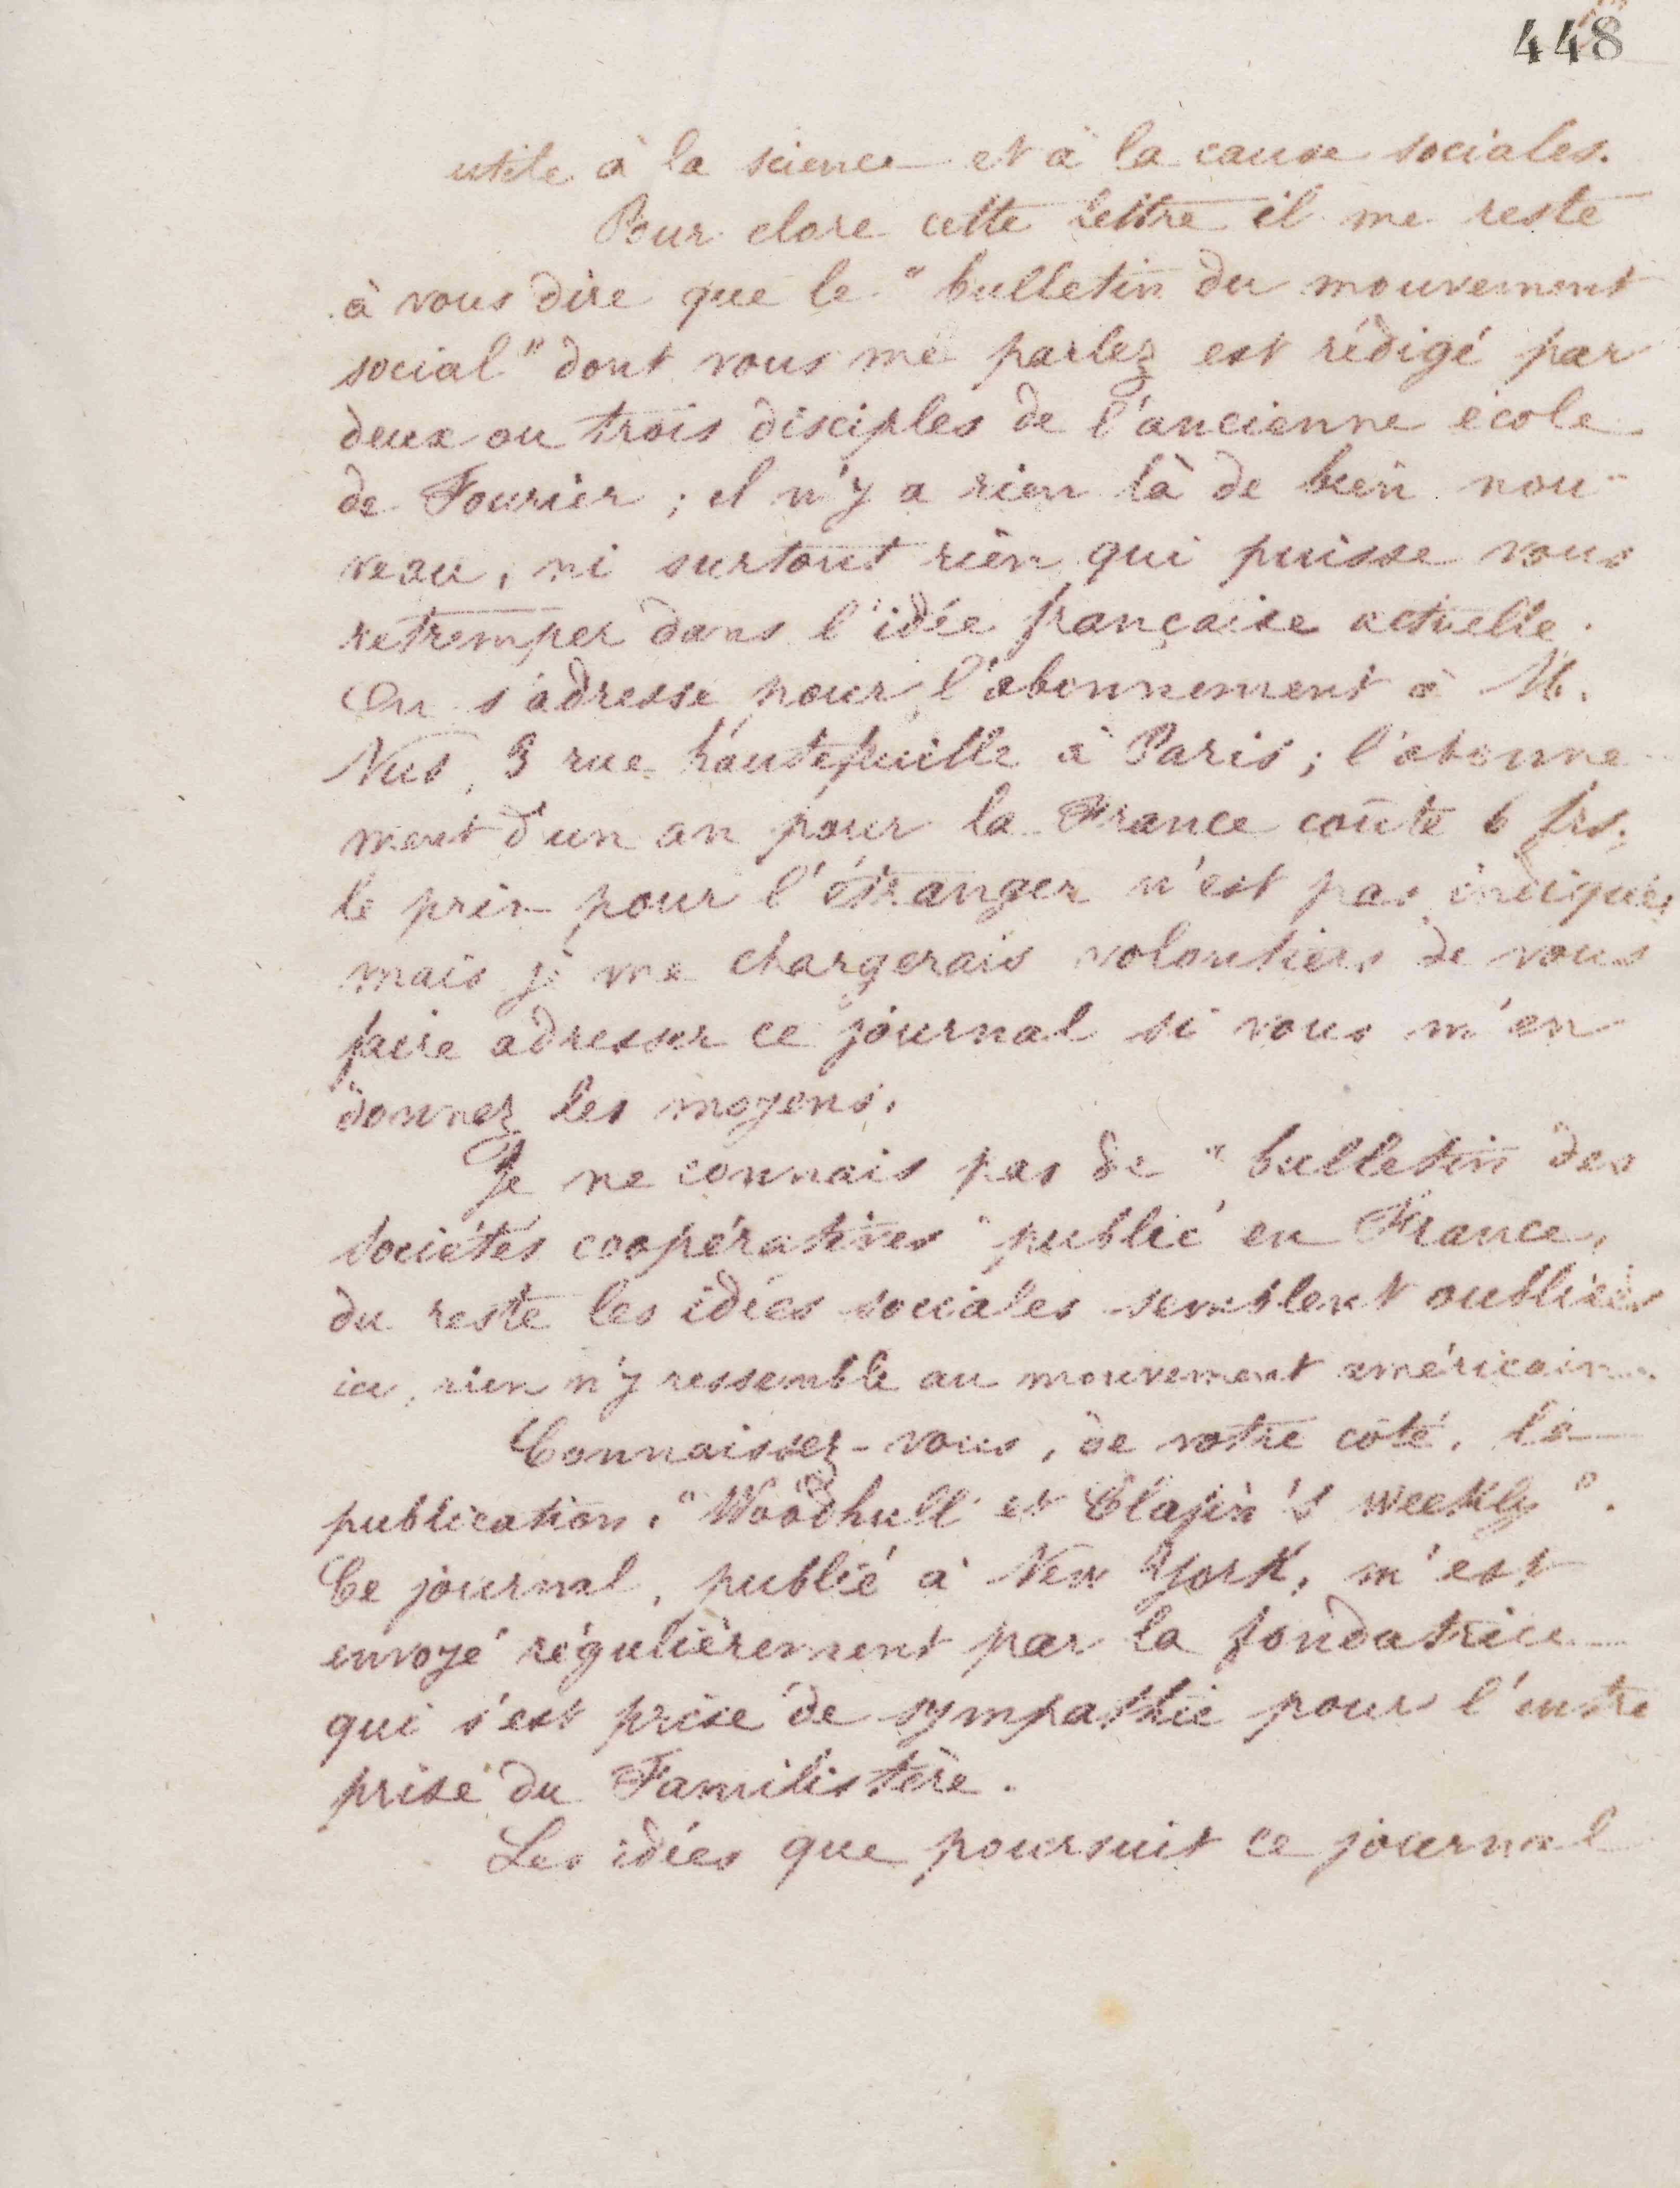 448
utile à la science et à la cause sociales.
Pour clore cette lettre il me reste
à vous dire que le "bulletin du mouvement
social" dont vous me parlez est rédigé par
deux ou trois disciples de l'ancienne école
de Fourier ; il n'y a rien là de bien nou-
veau, ni surtout rien qui puisse vous
retremper dans l'idée française actuelle.
On s'adresse pour l'abonnement à M.
Nus, 3 rue hautefeuille à Paris ; l'abonne-
ment d'un an pour la France coûte 6 frs.
le prix pour l'étranger n'est pas indiqué,
mais je me chargerais volontiers de vous
faire adresser ce journal si vous m'en
donnez les moyens.
Je ne connais pas de "bulletin des
sociétés coopératives" publié en France,
du reste les idées sociales semblent oubliées
ici, rien n'y ressemble au mouvement américain.
Connaissez-vous, de votre côté, la
publication, "Woodhull et Claflin's weekly".
Ce journal, publié à New York, m'est
envoyé régulièrement par la fondatrice
qui s'est prise de sympathie pour l'entre
prise du Familistère.
Les idées que poursuit ce journal